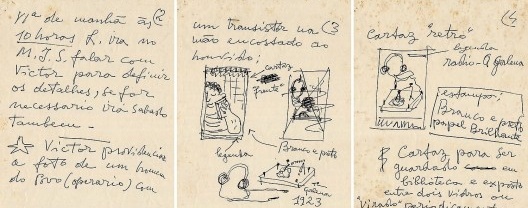 11ª de manhã às
10 horas L. vra no
M.J.S. falar com
Victor para definir
os detalhes, se for
necessario vrá Sabato
tambem —
Victor providencia
a foto de um homem
do povo (operario) com
um transistor na (3
mão encostado ao
ouvido;
cartaz
frente
legenda
Branco e preto
galena
1923
(4
Cartaz "retrô"
legenda
radio - A galena
estampo;
Branco e preto
papel Brilhante
Cartaz para ser
guardado em
biblioteca e exposto
entre dois vidros ou
"Virado" periodicamente